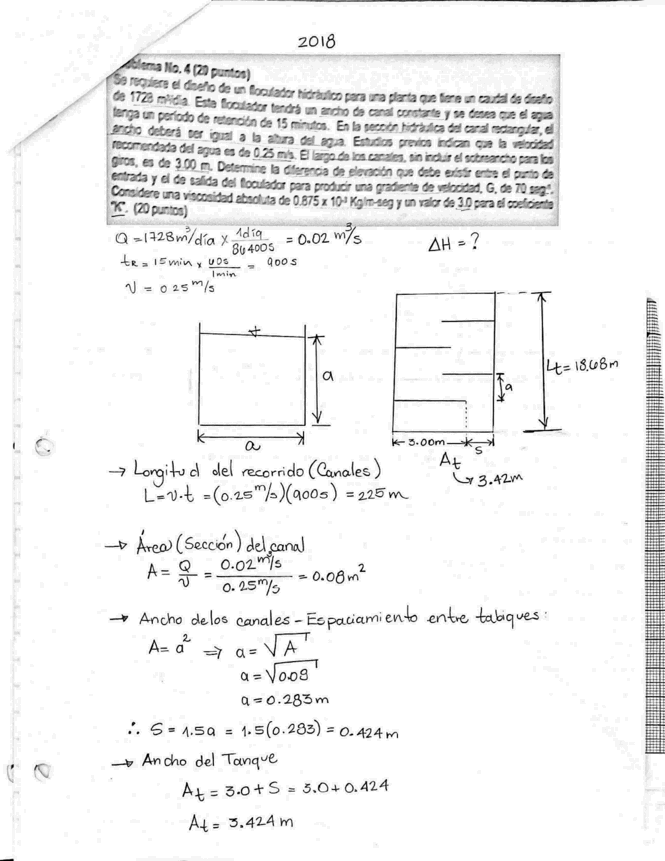 2018
Problema No. 4 (20 puntos)
Se requiere el diseño de un floculador hidráulico para una planta que tiene un caudal de diseño
de 1728 m³/día. Este floculador tendrá un ancho de canal constante y se desea que el agua
tenga un período de retención de 15 minutos. En la sección hidráulica del canal rectangular, el
ancho deberá ser igual a la altura del agua. Estudios previos indican que la velocidad
recomendada del agua es de 0.25 m/s. El largo de los canales, sin incluir el sobreancho para los
giros, es de 3.00 m. Determine la diferencia de elevación que debe existir entre el punto de
entrada y el de salida del floculador para producir una gradiente de velocidad, G, de 70 seg⁻¹.
Considere una viscosidad absoluta de 0.875 x 10⁻³ Kg/m-seg y un valor de 3.0 para el coeficiente
"K". (20 puntos)
Q = 1728 m³/día x 1día/86400s = 0.02 m³/s
ΔH = ?
tR = 15 min x 60s/1min = 900s
V = 0.25 m/s
a
a
Lt = 18.68m
a
3.00m
S
At
↳ 3.42m
→ Longitud del recorrido (Canales)
L = v·t = (0.25 m/s)(900s) = 225 m
→ Área (Sección) del canal
A = Q/V = 0.02 m³/s / 0.25 m/s = 0.08 m²
→ Ancho de los canales - Espaciamiento entre tabiques:
A = a² ⇒ a = √A
a = √0.08
a = 0.283 m
∴ S = 1.5a = 1.5(0.283) = 0.424 m
→ Ancho del Tanque
At = 3.0 + S = 3.0 + 0.424
At = 3.424 m